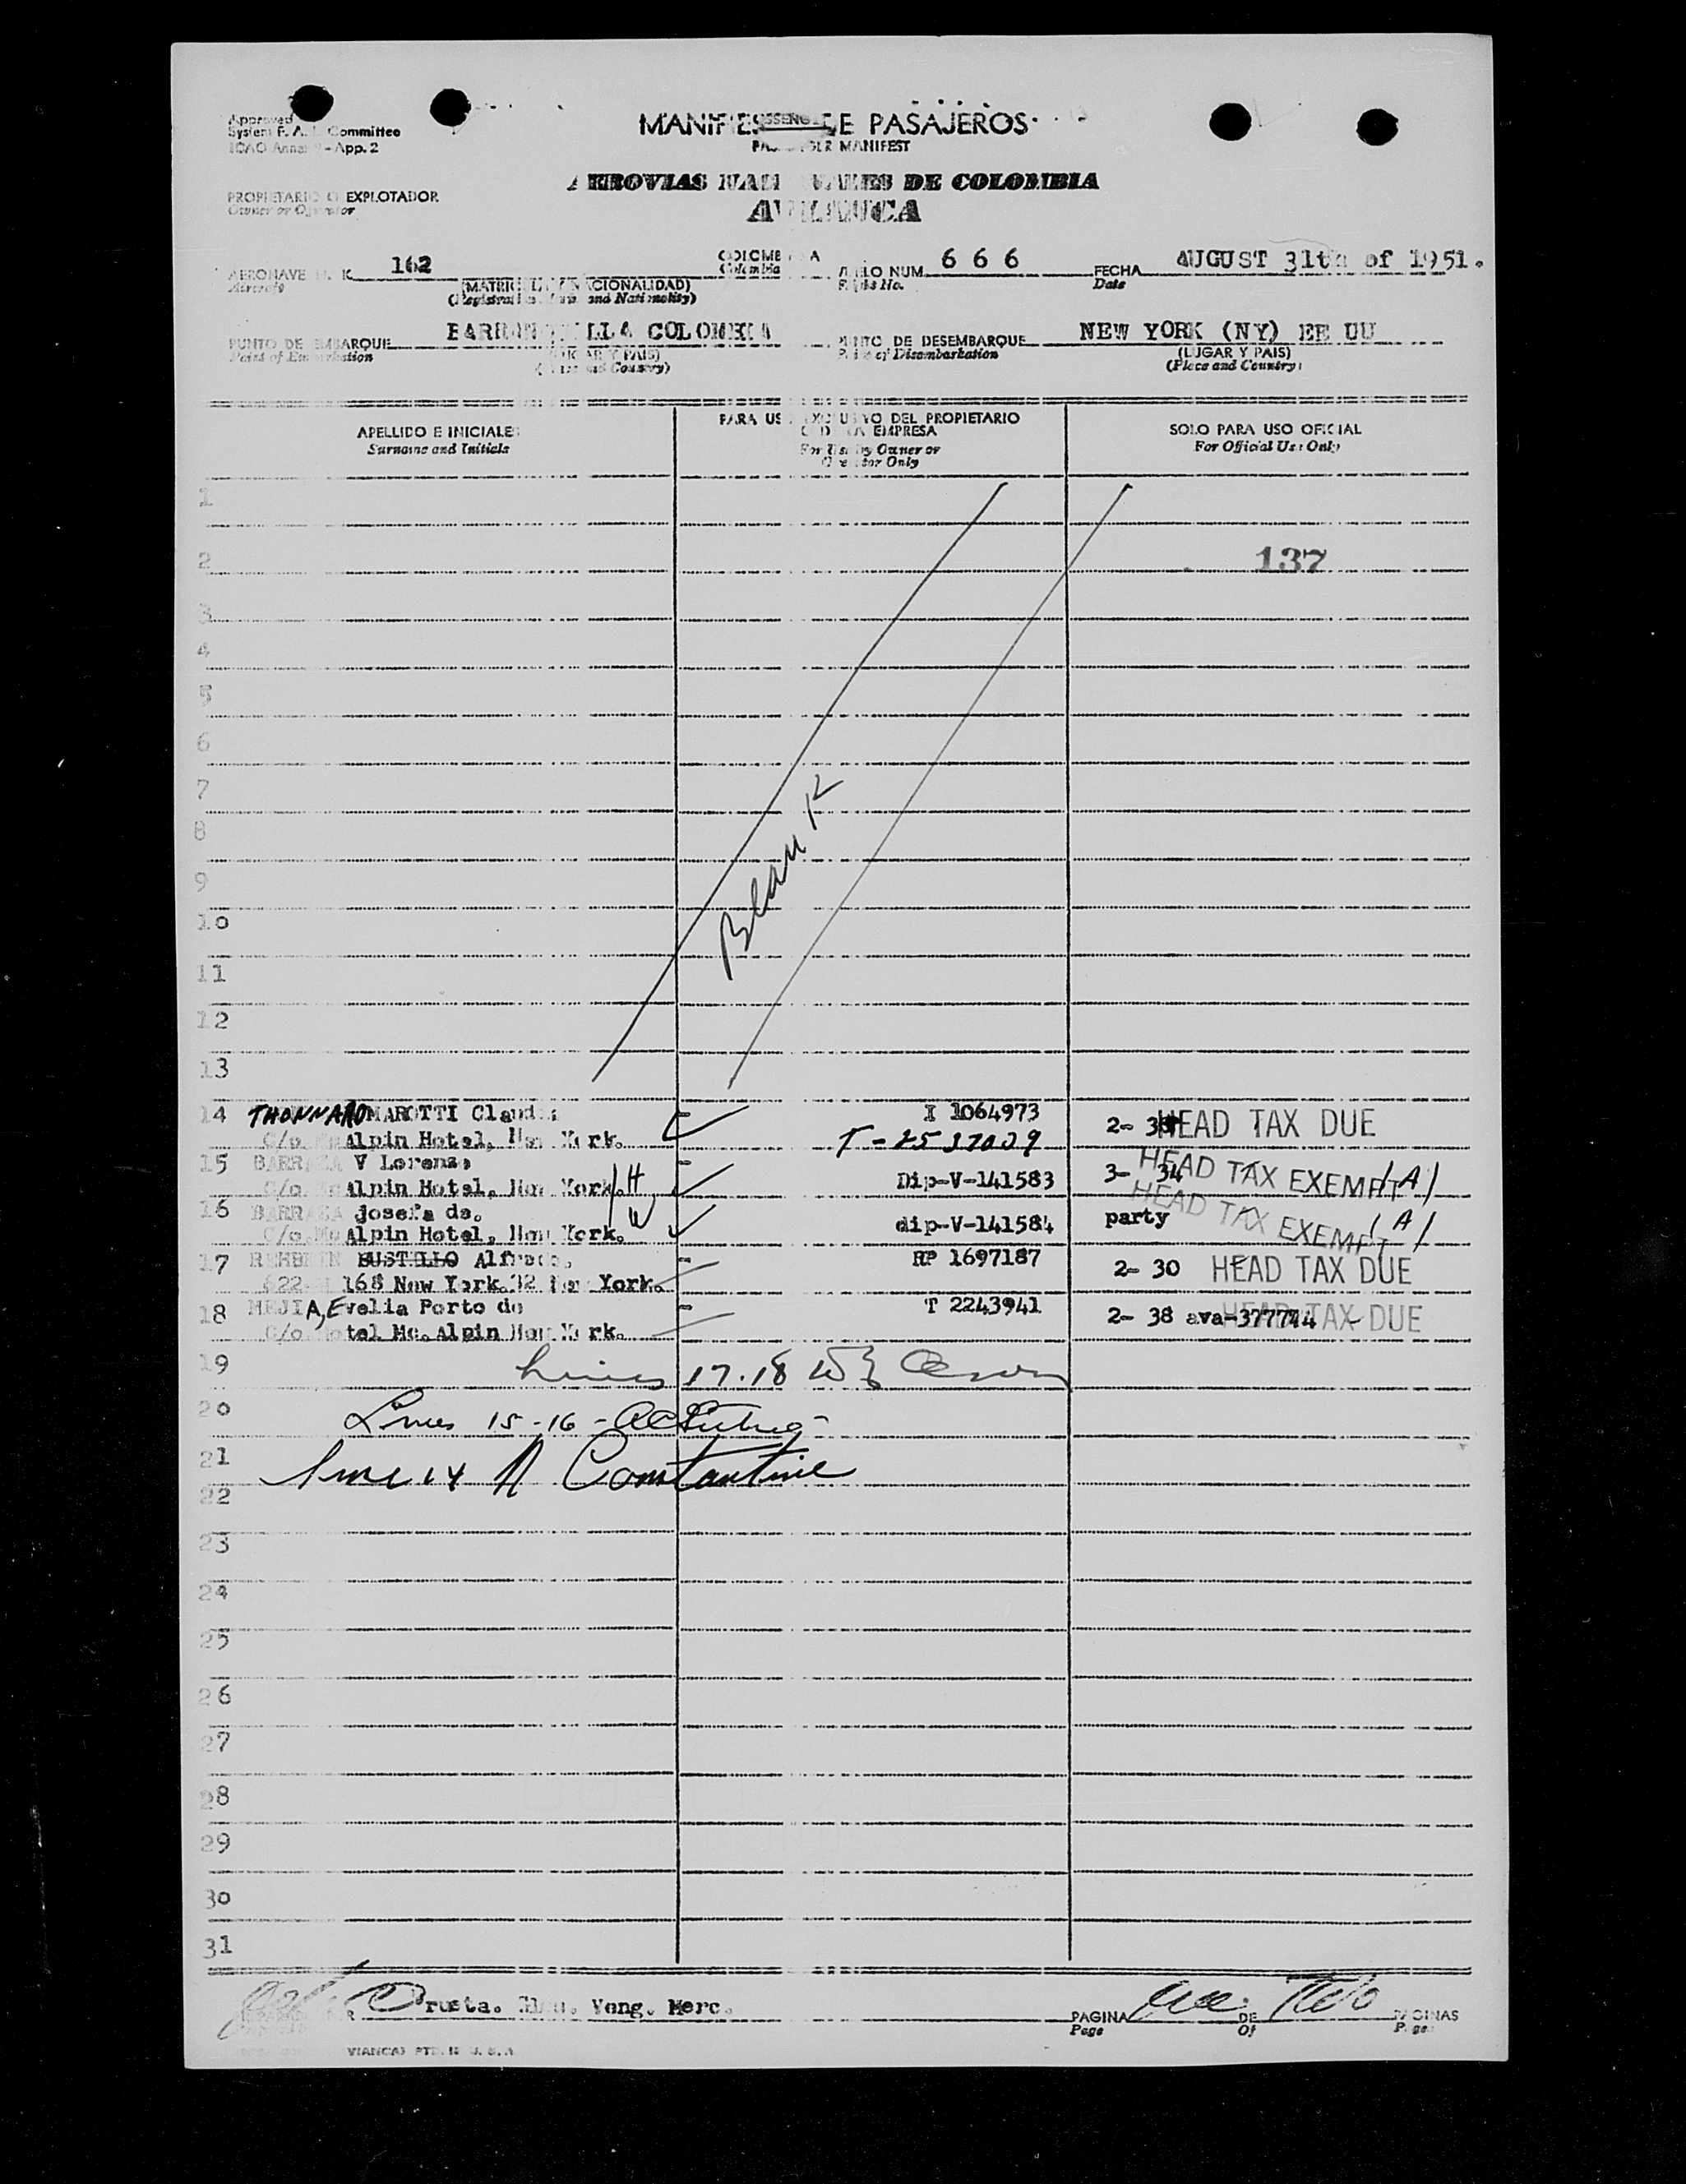 Approved
System F. A. L. Committee
ICAO Annex 9 - App. 2
MANIFIESTO DE PASAJEROS
PASSENGER MANIFEST
AEROVIAS NACIONALES DE COLOMBIA
AVIANCA
PROPIETARIO O EXPLOTADOR
Owner or Operator
AERONAVE H. K. 162 COLOMBIA VUELO NUM. 6 6 6 FECHA AUGUST 31th of 1951.
Aircraft Colombia Flight No. Date
(MATRICULA Y NACIONALIDAD)
(Registration Marks and Nationality)
PUNTO DE EMBARQUE BARRANQUILLA COLOMBIA PUNTO DE DESEMBARQUE NEW YORK (NY) EE UU
Point of Embarkation (LUGAR Y PAIS) Point of Disembarkation (LUGAR Y PAIS)
(Place and Country) (Place and Country)
APELLIDO E INICIALES PARA USO EXCLUSIVO DEL PROPIETARIO O DE LA EMPRESA SOLO PARA USO OFICIAL
Surname and Initials For Use by Owner or Operator Only For Official Use Only
1
2 137
3
4
5
6
7
8
Blank
9
10
11
12
13
14 THONNARD MAROTTI Claudia I 1064973 2- HEAD TAX DUE
C/o Mc Alpin Hotel, New York. T-2537009
15 BARRAZA V Lorenzo
C/o Mc Alpin Hotel, New York. H Dip-V-141583 3- 34 HEAD TAX EXEMPT (A)
16 BARRAZA Josefa de.
C/o Mc Alpin Hotel, New York. W dip-V-141584 party HEAD TAX EXEMPT (A)
17 BUSTILLO Alfredo. RP 1697187 2- 30 HEAD TAX DUE
622 168 New York.32 New York.
18 MEJIA, Evelia Porto de T 2243941 2- 38 ava-377744 HEAD TAX DUE
C/o Hotel Mc. Alpin New York.
19 Lines 17.18
20 Lines 15-16 -
21 Line 14 N Constantine
22
23
24
25
26
27
28
29
30
31
Crusta. Veng. Merc.
PAGINA DE PAGINAS
Page Of Pages